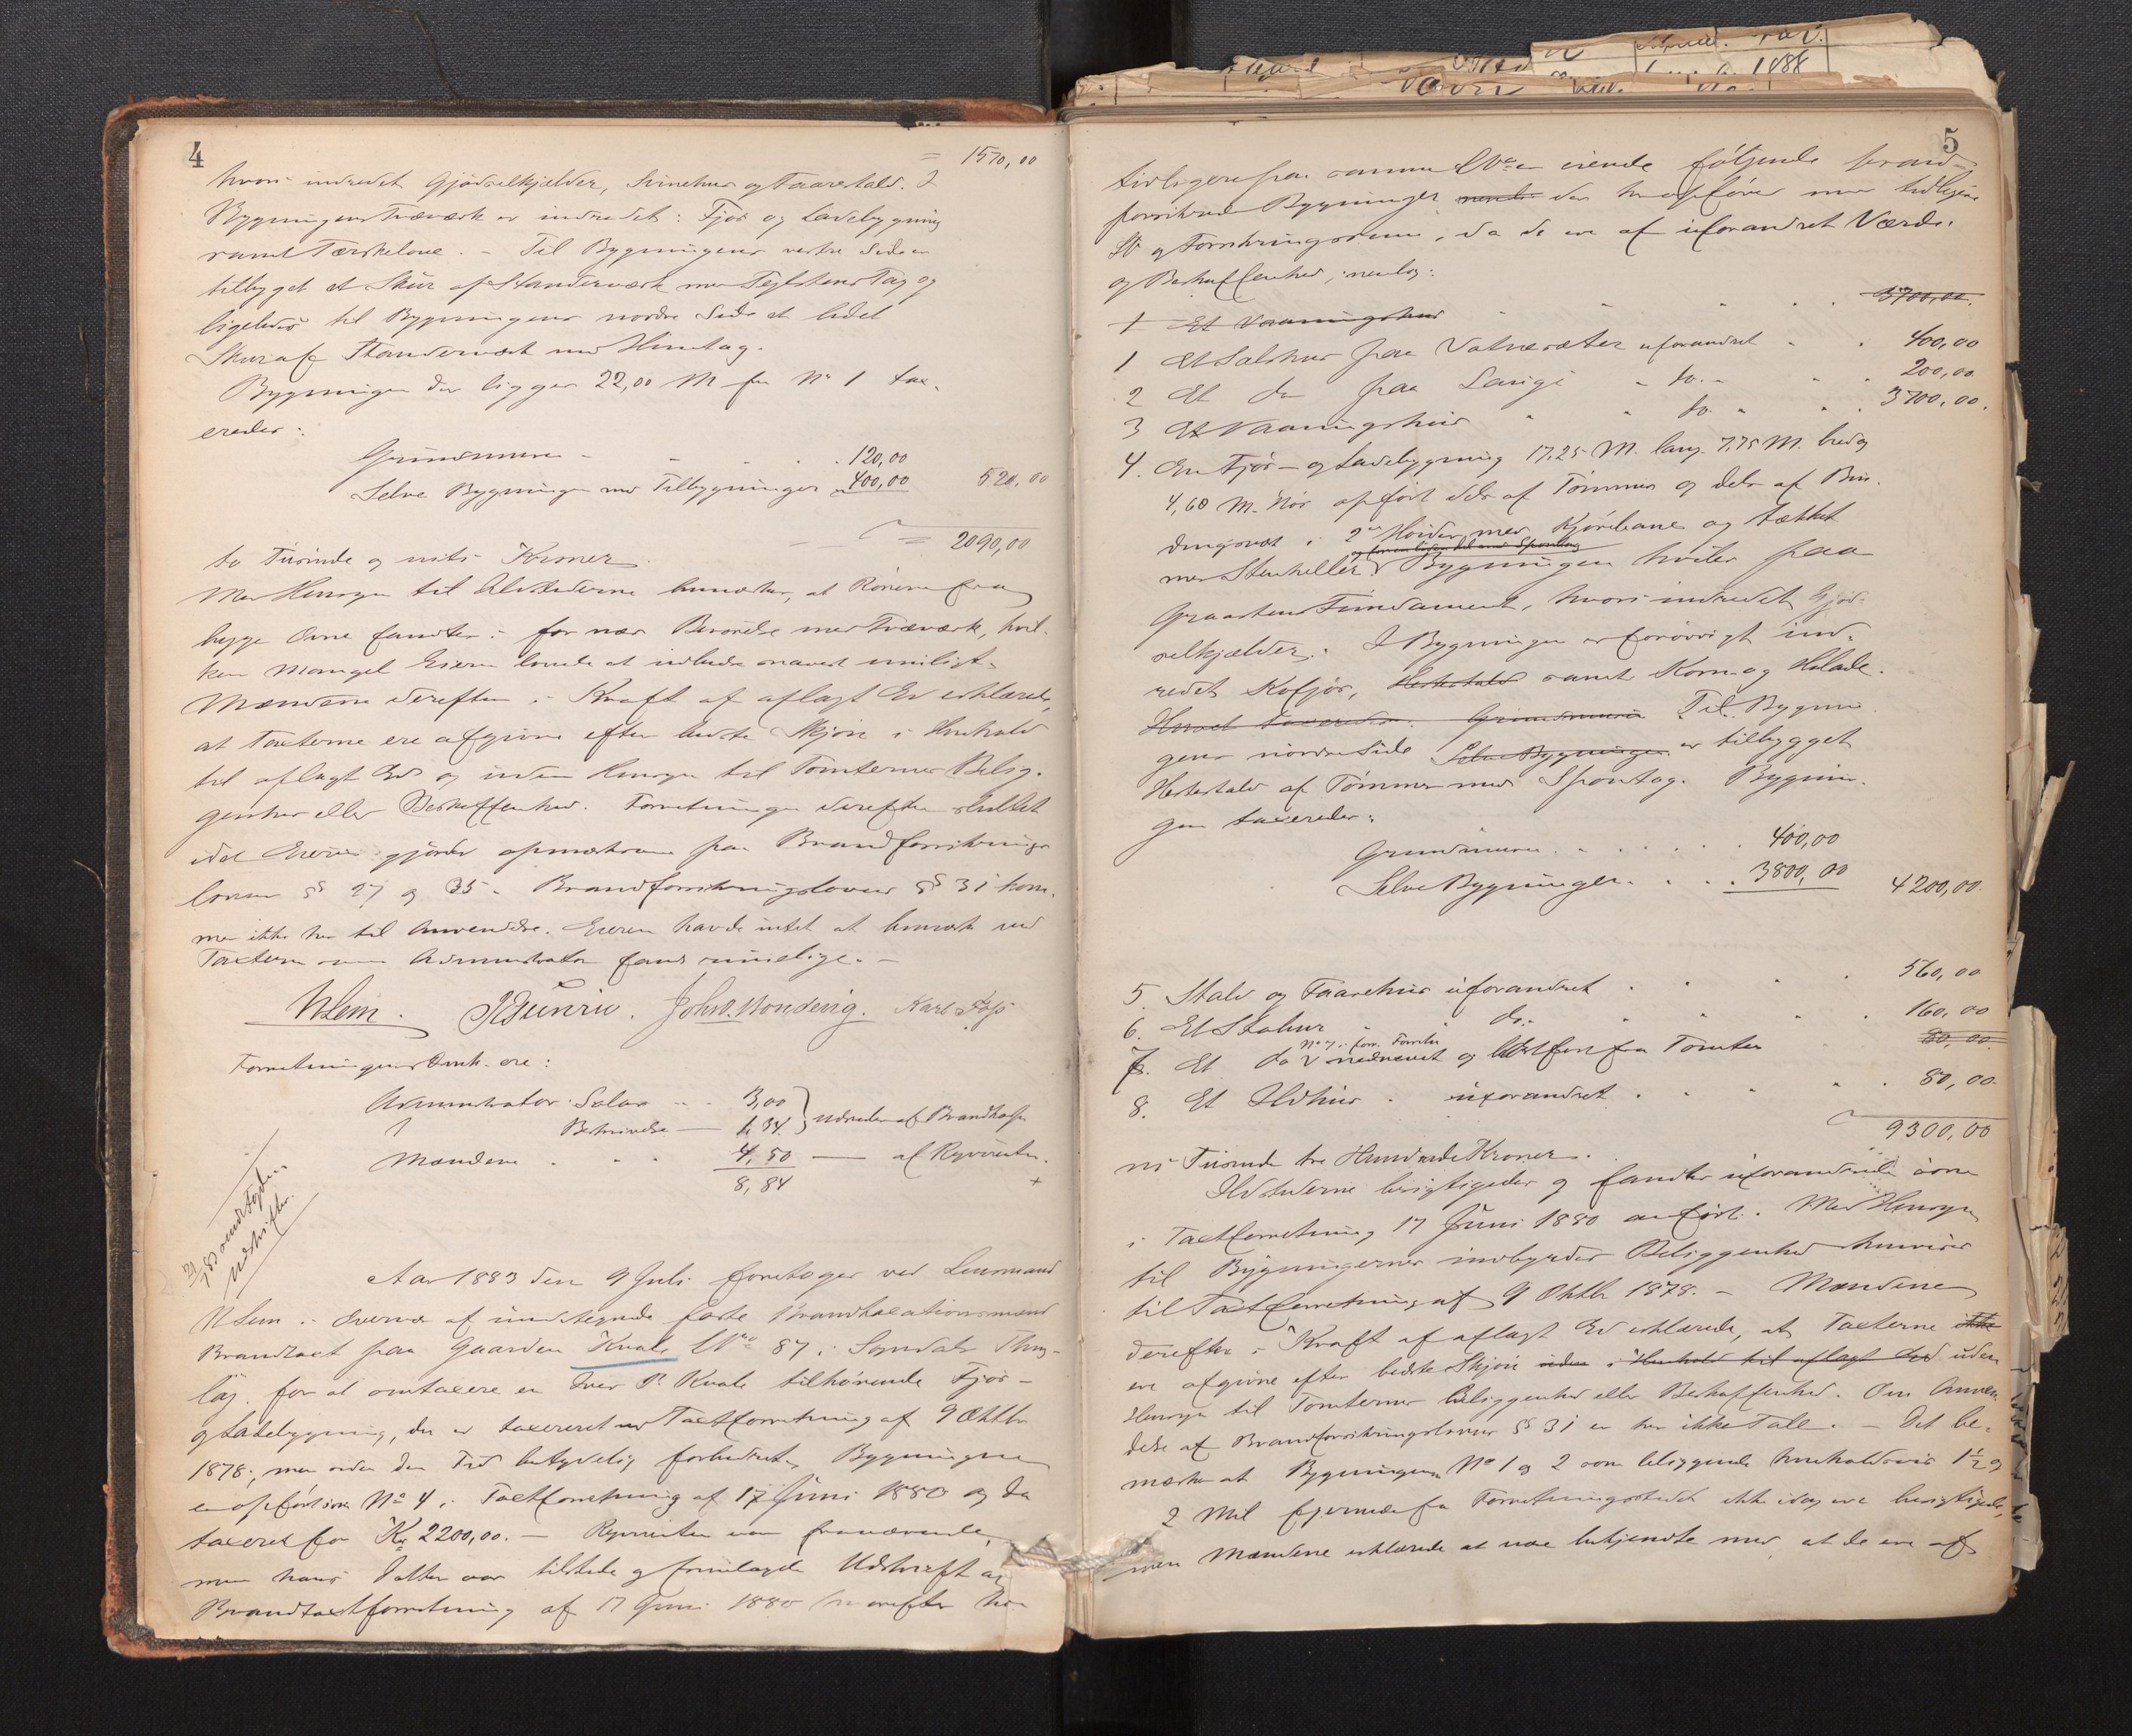 4
= 1570,00
hvori indredet Gjødselkjælder, Svinehus og Faarestald. I
Bygningens Træværk er indredet: Fjøs og Ladebygning
samt Tærskelove. - Til Bygningens vestre Side er
tilbygget et Skur af Standerværk med Teglstens Tag og
ligeledes til Bygningens nordre Side et lidet
Skur af Standerværk med Huntag.
Bygningen der ligger 22,00 M fra No 1 tax-
eredes:
Grundmuren - 120,00
Selve Bygningen med Tilbygninger 400,00 520,00
= 2090,00
to Tusinde og nitti Kroner.
Med Hensyn til Ildstederne bemærkes, at Rørene fra
begge Ovne fandtes for nær Berørelse med Træværk, hvil-
ken Mangel Eieren lovede at udbedre snarest muligt.
Mændene derefter i Kraft af aflagt Ed erklærede,
at Taxterne ere afgivne efter bedste Skjøn i Henhold
til aflagt Ed og uden Hensyn til Tomternes Belig-
genhed eller Beskaffenhed. Forretningen derefter sluttet
idet Eieren gjordes opmærksom paa Brandforsikrings
lovens §§ 27 og 35. Brandforsikringslovens §§ 31 kom-
mer ikke her til Anvendelse. Eieren havde intet at bemærke ved
Taxterne som Administrator fandt rimelige. -
NLem. John O. Nondevig. Karl
Forretningens Omk. ere:
Administrator: Salær - - 3,00
Beskrivelse — 1,34 udredes af Brandkassen
Mændene . . . 4,50 — af Rqvirenten.
8,84
+
783 Udskrift
Aar 1883 den 9 Juli foretoges ved Lensmand
NLem i Overvær af undertegnede faste Brandtaxationsmænd
Brandtaxt paa Gaarden Kvale LNo 87 i Sogndals Thing-
lag. for at omtaxere en Iver P. Kvale tilhørende Fjøs-
og Ladebygning, der er taxeret ved Taxtforretning af 9 Oktbr
1878, men siden den Tid betydelig forbedret. Bygningen
er opført som No 4 i Taxtforretning af 17 Juni 1880 og da
taxeret for Kr 2200,00. — Rqvirenten var fraværende,
men hans Datter var tilstede og fremlagde Udskrift af
Brandtaxtforretning af 17 Juni 1880 hvorefter han
5
tidligere paa samme LNo er eiende følgende brand-
forsikrede Bygninger der her opføres med tidligere
No og Forsikringssum, da de ere af uforandret Værdi
og Beskaffenhed, nemlig:
1 Et Vaaningshus 3700,00.
1 Et Sælshus paa Vatnesæter uforandret - . 400,00
2 Et do paa Langi - do. - 200,00
3 Et Vaaningshus " " do. " . 3700,00.
4. En Fjøs- og Ladebygning 17,25 M. lang, 7,75 M. bred og
4,60 M. høi opført dels af Tømmer og dels af Bin-
dingsværk i 2 Høider med Kjørebane og tækket
med Stenheller Bygningen hviler paa
Graastens Fundament, hvori indredet Gjød-
selkjælder. I Bygningen er forøvrigt ind-
redet Kofjøs, Hestestald samt Korn- og Hølade.
Grundmuren Til Bygnin-
gens nordre Side Selve Bygningen er tilbygget
Hestestald af Tømmer med Spontag. Bygnin-
gen taxeredes:
Grundmuren . . . . . . 400,00
Selve Bygningen . . . 3800,00 4200,00.
5. Stald og Faarehus uforandret . . . . 560,00
6. Et Stabur - do. . . . . 160,00
7. Et do No 7 i forr. Forretn nedrevet og bortført fra Tomten 80,00
8. Et Ildhus . uforandret . . . . 80,00.
9300,00
ni Tusinde tre Hundrede Kroner.
Ildstederne besigtigedes og fandtes uforandrede som
i Taxtforretning 17 Juni 1880 anført. Med Hensyn
til Bygningernes indbyrdes Beliggenhed henvises
til Taxtforretning af 9 Oktbr 1878. - Mændene
derefter i Kraft af aflagt Ed erklærede, at Taxterne ikke
ere afgivne efter bedste Skjøn uden i Henhold til aflagt Ed uden
Hensyn til Tomternes Beliggenhed eller Beskaffenhed. Om Anven-
delse af Brandforsikringslovens §§ 31 er her ikke Tale. - Det be-
mærkes at Bygningerne No 1 og 2 som beliggende henholdsvis 1½ og
2 Mil fjernede fra Forretningsstedet ikke idag ere besigtigede,
men Mændene erklærede at være bekjendte med, at de ere af